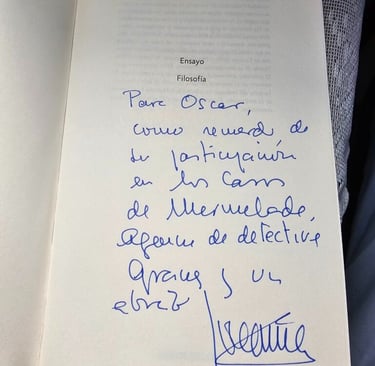 Ensayo
Filosofía
Para Oscar,
como recuerdo de
su participación
en los Casos
de Mermelada,
agencia de detective
Gracias y un
abrazo